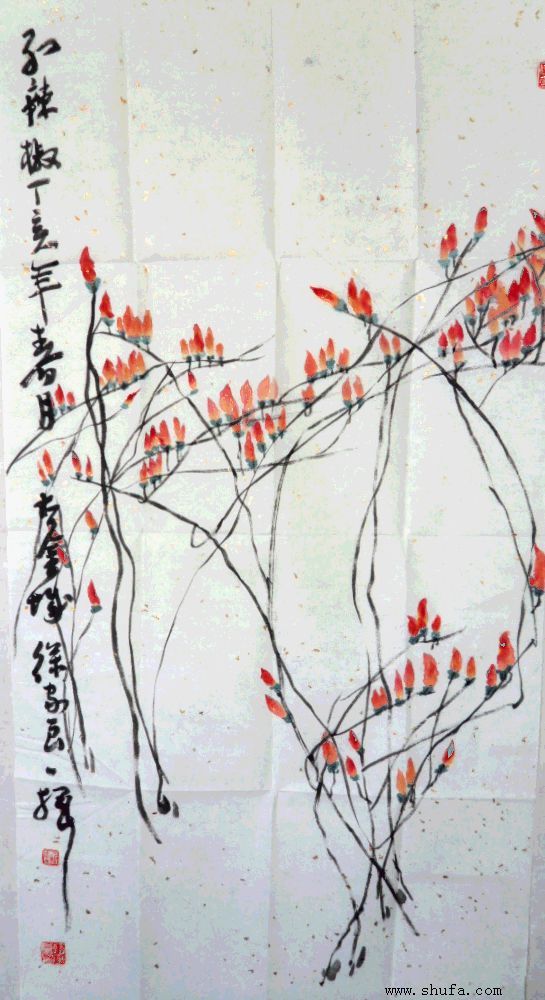 红辣椒丁亥年春月
古金城徐家良
www.shufa.com